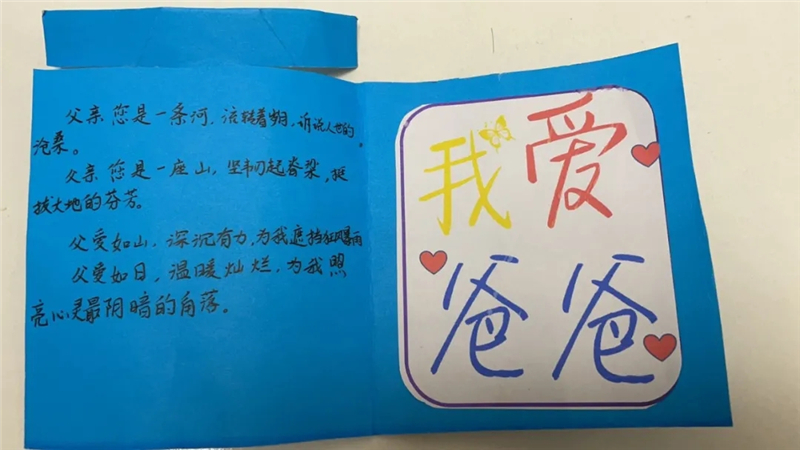 父亲您是一条河，流转着 ，诉说人世的
沧桑。
父亲您是一座山，坚韧起脊梁，挺
拔大地的芬芳。
父爱如山，深沉有力，为我遮挡狂风暴雨
父爱如日，温暖灿烂，为我照
亮心灵最阴暗的角落。
我爱
爸爸